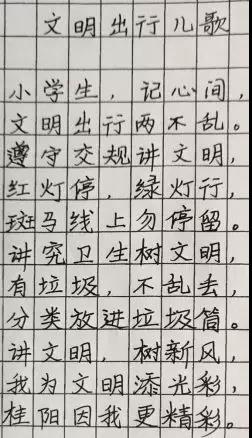 文明出行儿歌
小学生，记心间，
文明出行两不乱。
遵守交规讲文明，
红灯停，绿灯行，
斑马线上勿停留。
讲究卫生树文明，
有垃圾，不乱丢，
分类放进垃圾筒。
讲文明，树新风，
我为文明添光彩，
桂阳因我更精彩。